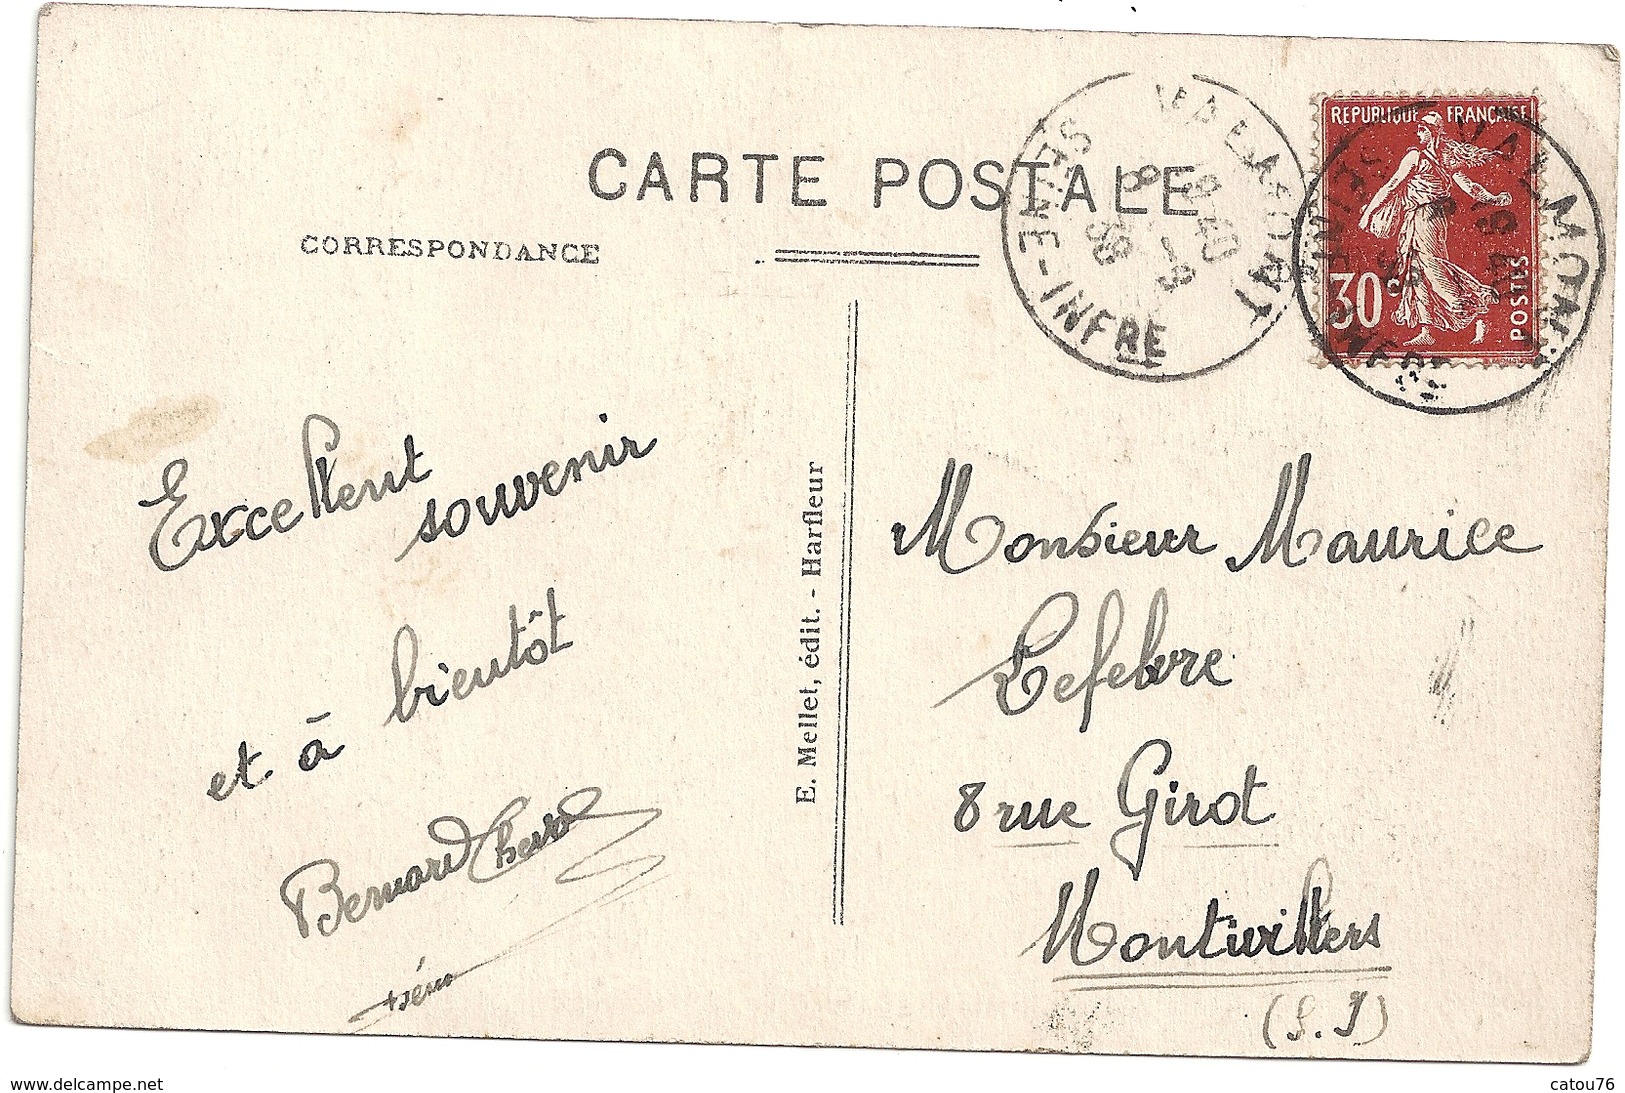 CARTE POSTALE
CORRESPONDANCE
VALMONT
SEINE-INFRE
18 40
8 - 3
38
REPUBLIQUE FRANÇAISE
30c
POSTES
VALMONT
Excellent
souvenir
et à bientôt
Bernard
E. Mellet, édit. - Harfleur
Monsieur Maurice
Lefebvre
8 rue Girot
Montivilliers
(S. I)
www.delcampe.net
catou76